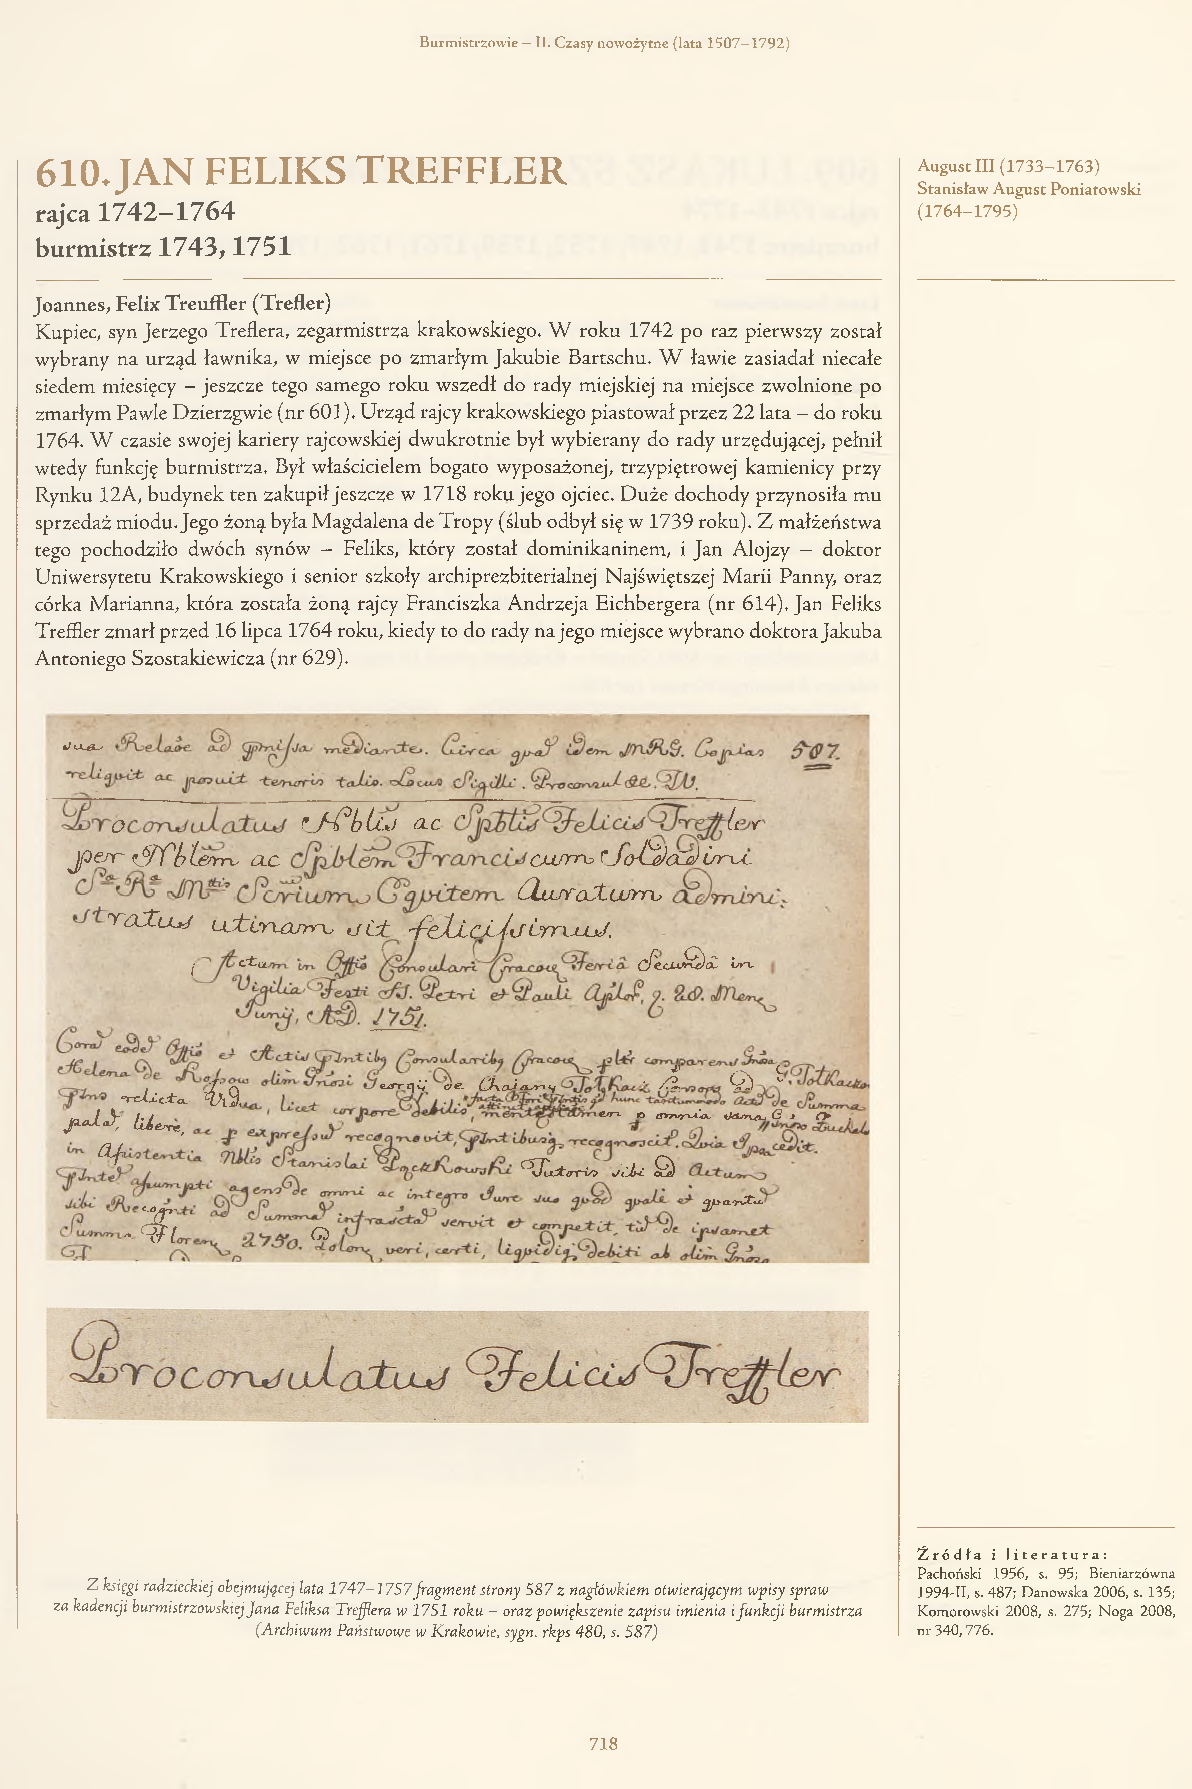 Burmistrzowie – II. Czasy nowożytne (lata 1507–1792)
610. JAN FELIKS TREFFLER
rajca 1742–1764
burmistrz 1743, 1751
August III (1733–1763)
Stanisław August Poniatowski
(1764–1795)
Joannes, Felix Treuffler (Trefler)
Kupiec, syn Jerzego Treflera, zegarmistrza krakowskiego. W roku 1742 po raz pierwszy został
wybrany na urząd ławnika, w miejsce po zmarłym Jakubie Bartschu. W ławie zasiadał niecałe
siedem miesięcy – jeszcze tego samego roku wszedł do rady miejskiej na miejsce zwolnione po
zmarłym Pawle Dzierzgwie (nr 601). Urząd rajcy krakowskiego piastował przez 22 lata – do roku
1764. W czasie swojej kariery rajcowskiej dwukrotnie był wybierany do rady urzędującej, pełnił
wtedy funkcję burmistrza. Był właścicielem bogato wyposażonej, trzypiętrowej kamienicy przy
Rynku 12A, budynek ten zakupił jeszcze w 1718 roku jego ojciec. Duże dochody przynosiła mu
sprzedaż miodu. Jego żoną była Magdalena de Tropy (ślub odbył się w 1739 roku). Z małżeństwa
tego pochodziło dwóch synów – Feliks, który został dominikaninem, i Jan Alojzy – doktor
Uniwersytetu Krakowskiego i senior szkoły archiprezbiterialnej Najświętszej Marii Panny, oraz
córka Marianna, która została żoną rajcy Franciszka Andrzeja Eichbergera (nr 614). Jan Feliks
Treffler zmarł przed 16 lipca 1764 roku, kiedy to do rady na jego miejsce wybrano doktora Jakuba
Antoniego Szostakiewicza (nr 629).
sua Relaõe ad mediante. Circa idem Copias 587.
reliquit ac posuit tenoris talis. Locus Sigilli. Proconsul
Proconsulatus Nblis ac Spblis Felicis Treffler
per Nblem ac Spblem Franciscum Soldadini
Equitem Auratum admini:
stratus utinam sit felicissimus.
Actum in Offio Consulari Feria Secunda in
Vigilia Festi SS. Petri et Pauli 28. Mens
Junij, A.D. 1751.
et Actis Consularibg comparens
Helena de olim Georgij de
relicta Vidua, licet corpore debilis, mente tamen omnia sana
libere, ac recognovit, recognoscit. Quia
in Assistentia Nblis Stanislai Tutoris sibi ad Actum
assumpti agens de omni ac integro Jure suo
sibi ad Summam servit et competit, de ipsamet
Summa Floren 2750. Polon veri, certi, debiti ab olim
Proconsulatus Felicis Treffler
Z księgi radzieckiej obejmującej lata 1747–1757 fragment strony 587 z nagłówkiem otwierającym wpisy spraw
za kadencji burmistrzowskiej Jana Feliksa Trefflera w 1751 roku – oraz powiększenie zapisu imienia i funkcji burmistrza
(Archiwum Państwowe w Krakowie, sygn. rkps 480, s. 587)
Źródła i literatura:
Pachoński 1956, s. 95; Bieniarzówna
1994-II, s. 487; Danowska 2006, s. 135;
Komorowski 2008, s. 275; Noga 2008,
nr 340, 776.
718